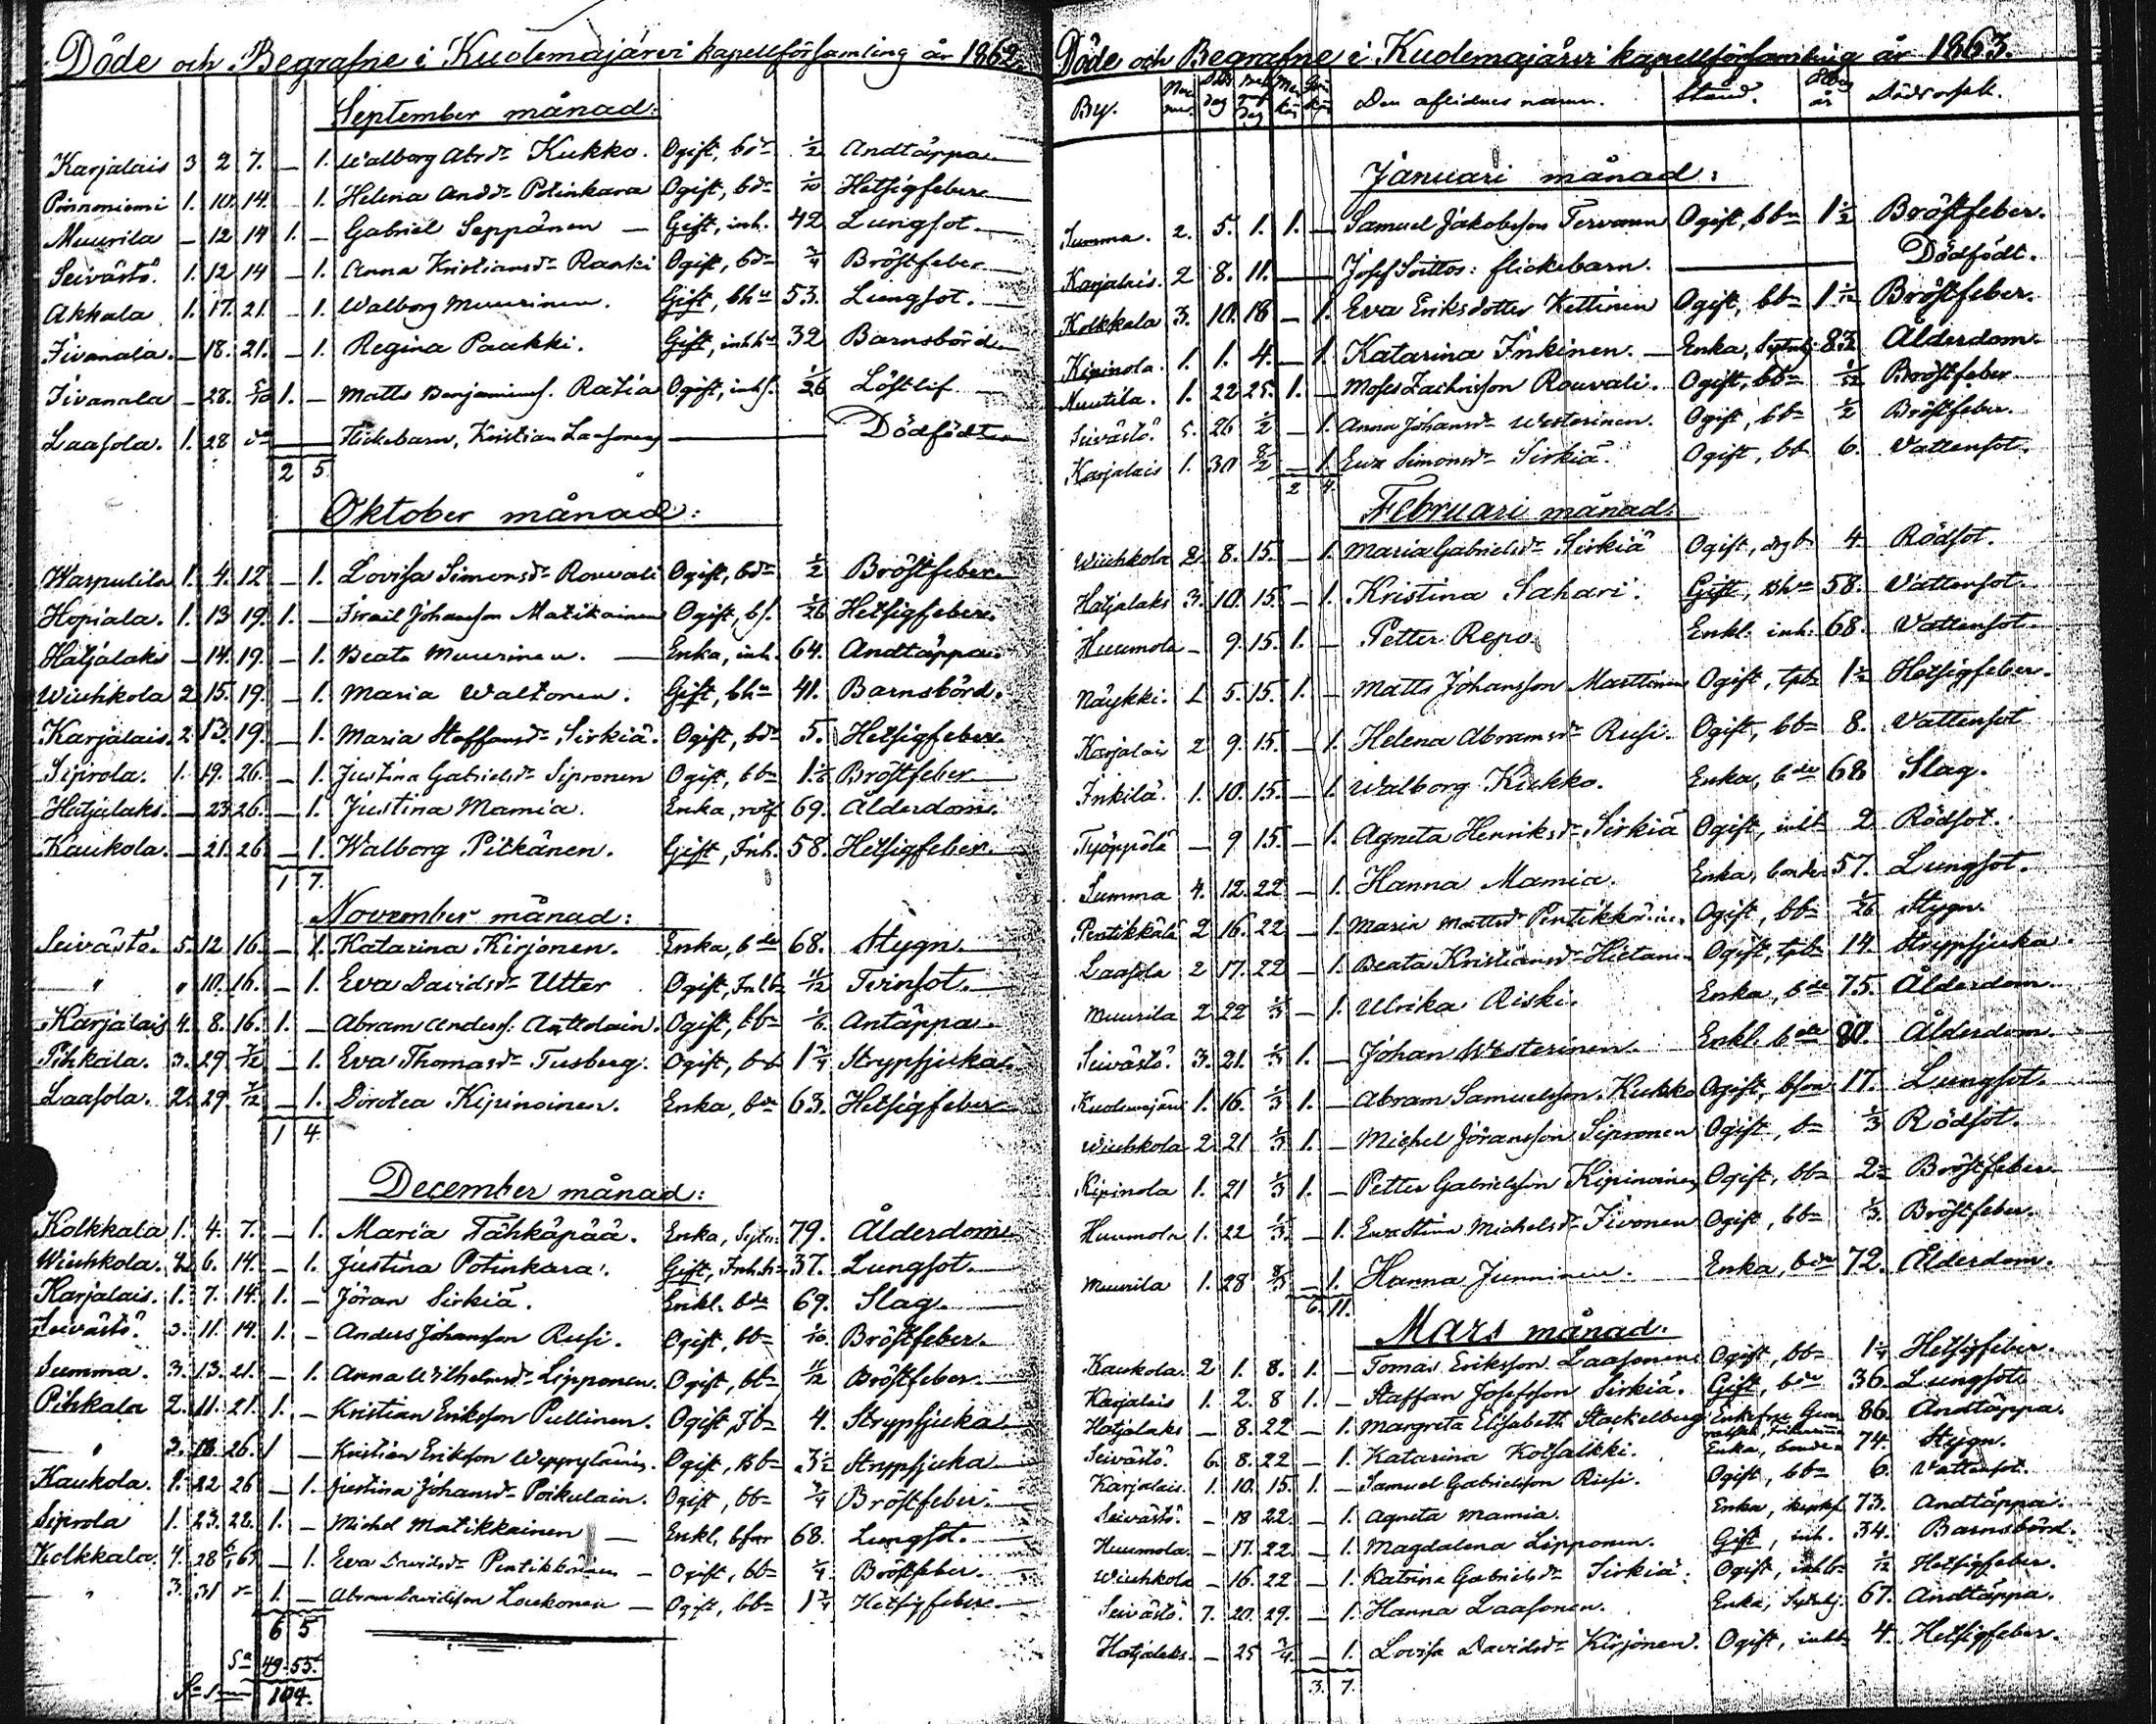 Döde och Begrafne i Kuolemajärvi kapellförsamling år 1862.
September månad:
Karjalais 3 2 7. — 1. Walborg Abrdr Kukko. Ogift, bdr 1/2 Andtäppa
Pinnoniemi 1. 10. 14. 1. Helena Anddr Potinkara Ogift, bdr 1/10 Hetsigfeber
Muurila — 12 14 1. — Gabriel Seppänen — Gift, inh. 42 Lungsot.
Seivästö. 1. 12 14 — 1. Anna Kristiansdr Raski Ogift, bdr 3/4 Bröstfeber
Akkala 1. 17. 21. — 1. Walborg Muurinen. Gift, bhu 53. Lungsot.
Iivanala. — 18. 21. — 1. Regina Paukki. Gift, inhhu 32 Barnsbörd
Iivanala — 28. 5/10 1. — Matts Benjaminsf. Ratia Ogift, inhf. 1/26 Löstlif
Laasola. 1. 28 do Flickebarn, Kristian Laasonens — Dödfödt
2 5.
Oktober månad:
Warpulila 1. 4. 12 — 1. Lovisa Simonsdr Rouvali Ogift, bdr 1/2 Bröstfeber
Hopiala. 1. 13 19. 1. — Israil Johansson Matikainen Ogift, bf. 1/26 Hetsigfeber.
Hatjalaks — 14. 19. — 1. Beata Muurinen. — Enka, inh. 64. Andtäppa
Wiuhkola 2 15. 19. — 1. Maria Waltonen. Gift, bhu 41. Barnsbörd.
Karjalais. 2 13. 19. — 1. Maria Staffansdr Sirkiä. Ogift, bdr 5. Hetsigfeber
Siprola. 1. 19. 26. — 1. Justina Gabrielsdr Sipronen Ogift, bbn Bröstfeber
Hatjalaks. — 23. 26. — 1. Justina Mamia. Enka, 69. Ålderdom.
Kaukola. — 21. 26. — 1. Walborg Pitkänen. Gift, Inh. 58. Hetsigfeber.
1 7.
November månad:
Seivästö. 5. 12 16. — 1. Katarina Kirjonen. Enka, bde 68. Stygn.
— " " 10. 16. — 1. Eva Davidsdr Utter Ogift, Inbn 11/12 Tvinsot.
Karjalais 4. 8. 16. 1. — Abram Andersf. Anttolain. Ogift, bbn 1/6 Antäppa
Pihkala. 3. 29 7/12 — 1. Eva Thomasdr Tusberg. Ogift, bb 1 3/4 Strypsjuka
Laasola. 2. 29. 7/12 — 1. Dorotea Kipinoinen. Enka, bde 63. Hetsigfeber
1 4.
December månad:
Kolkkala 1. 4. 7. — 1. Maria Tähkäpää. Enka, Sytn. 79. Ålderdom
Wiuhkola. 2 6. 14. — 1. Justina Potinkara. Gift, Inh.h 37. Lungsot.
Karjalais. 1. 7. 14. 1. — Jöran Sirkiä. Enkl. bde 69. Slag.
Seivästö. 3. 11. 14. 1. — Anders Johansson Rusi. Ogift, bbn 1/10. Bröstfeber.
Summa. 3. 13. 21. — 1. Anna Wilhelmsdr Lipponen. Ogift, bbn 11/12 Bröstfeber.
Pihkala 2. 11. 21. 1. — Kristian Eriksson Pullinen. Ogift, Ibn 4. Strypsjuka
— " 2. 18. 26. 1 — Kristian Eriksson Weppyläinen. Ogift, Bbn 3 1/2 Strypsjuka
Kaukola. 1. 22 26 — 1. Justina Johansdr Poikulain. Ogift, bbn 3/4 Bröstfeber.
Siprola 1. 23. 28. 1. — Michel Matikkainen — Enkl, bfar 68. Lungsot.
Kolkkala. 4. 28 63 — 1. Eva Davidsdr Pentikkäinen — Ogift, bbn 1/4 Bröstfeber.
" 3. 31 do 1. — Abram Davidsson Loukonen — Ogift, bbn 1 3/4 Hetsigfeber.
6 5
Sa 49. 55.
Sa Sum 104.
Döde och Begrafne i Kuolemajärvi kapellförsamling år 1863.
By. Num̄er. Död dag Begraf Dag Mankön Qvinkön Den aflidnes namn. Stånd. år Dödsorsak.
Januari månad:
Summa. 2. 5. 1. 1. — Samuel Jakobsson Tervanen Ogift, bbn 1 1/2 Bröstfeber.
Karjalais. 2 8. 11. — Josef Soittos: flickebarn. — Dödfödt.
Kolkkala 3. 10. 18 — 1. Eva Eriksdotter Kettinen Ogift, bbn 1 1/12 Bröstfeber.
Kipinola. 1. 1. 4. — 1. Katarina Inkinen. — Enka, 83 Ålderdom.
Nuutila. 1. 22 25. 1. — Moses Zachrisson Rouvali. Ogift, bbn 1/52 Bröstfeber
Seivästö. 5. 26 1/2 — 1. Anna Johansdr Westerinen. Ogift, bbn 1/2 Bröstfeber.
Karjalais 1. 30 8/2 — 1. Eva Simonsdr Sirkiä. Ogift, bb 6. Vattensot.
2 4.
Februari månad:
Wiuhkola 2. 8. 15. — 1. Maria Gabrielsdr Sirkiä Ogift, 4. Rödsot.
Hatjalaks 3. 10. 15. — 1. Kristina Sahari. Gift, Bhu 58. Vattensot.
Huumola — 9. 15. 1. — Petter Repo. Enkl. inh. 68. Vattensot.
Näykki. 1 5. 15. 1. — Matts Johansson Marttinen Ogift, tpbn 1 1/2 Hetsigfeber.
Karjalais 2 9. 15. — 1. Helena Abramsdr Rusi. Ogift, bbn 8. Vattensot
Inkilä. 1. 10. 15. — 1. Walborg Kukko. Enka, bde 68 Slag.
Työppölä — 9 15. — 1. Agneta Henriksdr Sirkiä Ogift, inb 2 Rödsot.
Summa 4. 12. 22 — 1. Hanna Mamia. Enka, bonden 57. Lungsot.
Pentikkälä 2 16. 22 — 1. Maria Mattsdr Pentikkäinen Ogift, bbn 1/26 Stygn.
Laasola 2 17. 22 — 1. Beata Kristiansdr Hietanen Ogift, tpbn 14. Strypsjuka.
Muurila 2 22 1/3 — 1. Ulrika Riski. Enka, bde 75. Ålderdom.
Seivästö. 3. 21. 1/3 1. — Johan Westerinen. Enkl. bde 80. Ålderdom.
Kuolemajärvi 1. 16. 1/3 1. — Abram Samuelsson Kukko Ogift, bson 17. Lungsot.
Wiuhkola 2. 21 1/3 1. — Michel Jöransson Sipronen Ogift, bn 1/3 Rödsot.
Kipinola 1. 21 1/3 1. — Petter Gabrielsson Kipinoinen Ogift, bbn 2 Bröstfeber
Huumola 1. 22 1/3 — 1. Eva Stina Michelsdr Iivonen Ogift, bbn 1/3. Bröstfeber.
Muurila 1. 28 8/3 — 1. Hanna Junninen. Enka, bde 72. Ålderdom.
6. 11.
Mars månad.
Kaukola. 2 1. 8. 1. — Tomas Eriksson Laasonen Ogift, bbn 1 1/4 Hetsigfeber.
Karjalais 1. 2. 8 1. — Staffan Josefsson Sirkiä. Gift, bde 36. Lungsot
Hatjalaks — 8. 22 — 1. Margreta Elisabeth Stackelberg Enkefru 86. Andtäppa.
Seivästö. 6. 8. 22 — 1. Katarina Kotsalkki. Enka, bonden 74. Stygn.
Karjalais. 1. 10. 15. 1. — Samuel Gabrielsson Rusi. Ogift, bbn 6. Vattensot.
Seivästö. — 18 22. — 1. Agneta Mamia. Enka, 73. Andtäppa.
Huumola. — 17. 22. — 1. Magdalena Lipponen. Gift, inh. 34. Barnsbörd.
Wiuhkola — 16. 22 — 1. Katrina Gabrielsdr Sirkiä. Ogift, inhbn 1/12 Hetsigfeber.
Seivästö. 7. 20. 29. — 1. Hanna Laasonen. Enka, 67. Andtäppa.
Hatjalaks. — 25 3/4 — 1. Lovisa Davidsdr Kirjonen. Ogift, inhb 4. Hetsigfeber.
3. 7.